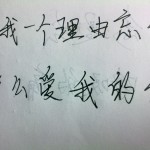 我一个理由忘
么爱我的